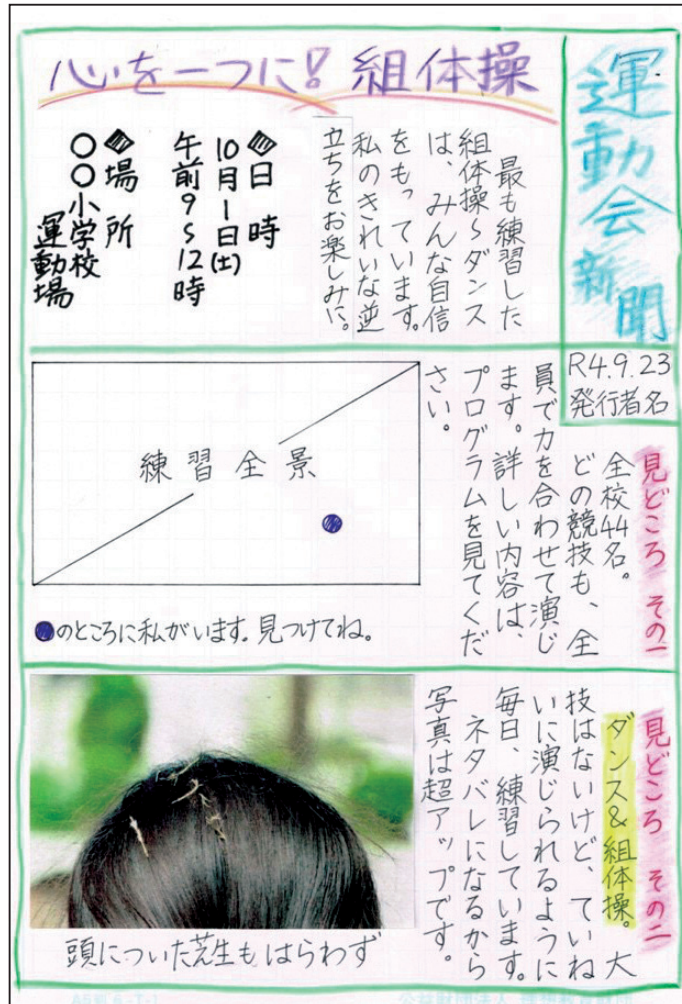 運動会新聞
R4.9.23
発行者名
心を一つに！組体操
最も練習した
組体操〜ダンス
は、みんな自信
をもっています。
私のきれいな逆
立ちをお楽しみに。
◆日時
10月1日(土)
午前9〜12時
◆場所
○○小学校
運動場
見どころ その一
全校44名。
どの競技も、全
員で力を合わせて演じ
ます。詳しい内容は、
プログラムを見てくだ
さい。
練習全景
●のところに私がいます。見つけてね。
見どころ その二
ダンス&組体操。大
技はないけど、ていね
いに演じられるように
毎日、練習しています。
ネタバレになるから
写真は超アップです。
頭についた芝生もはらわず